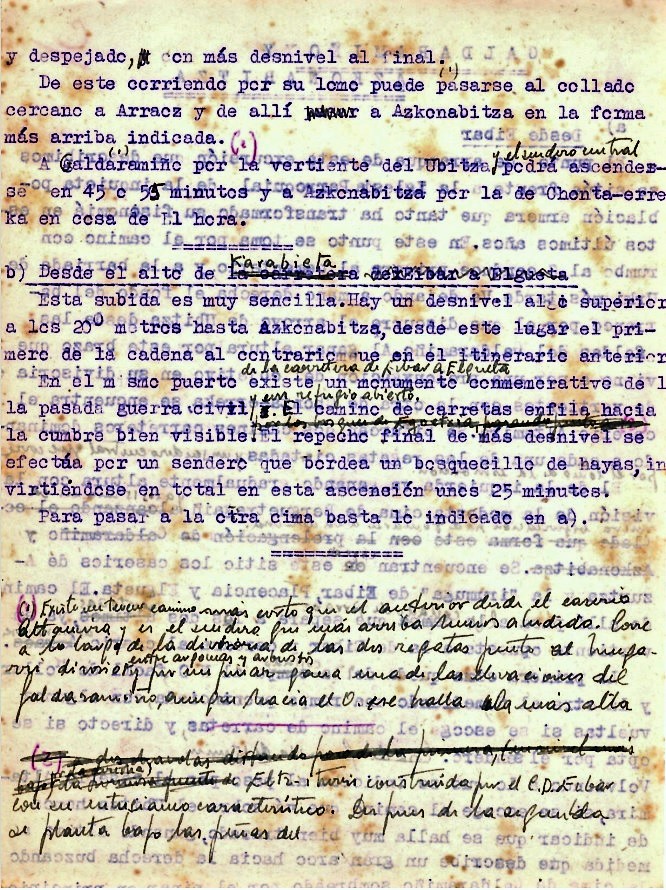 y despejado, con más desnivel al final.
De este corriendo por su lomo puede (1) pasarse al collado
cercano a Arraoz y de allí a Azkonabitza en la forma
más arriba indicada. (1)
y el sendero central
A Galdaramiño (1) por la vertiente del Ubitza podrá ascender-
se en 45 o 55 minutos y a Azkonabitza por la de Chonta-erre
ka en cosa de 1 hora.
Karabieta
b) Desde el alto de la carretera de Eibar a Elgueta
Esta subida es muy sencilla. Hay un desnivel algo superior
a los 200 metros hasta Azkonabitza, desde este lugar el pri-
mero de la cadena al contrario que en el itinerario anterior
de la carretera de Eibar a Elgueta
En el m smo puerto existe un monumento conmemorativo de l
y un refugio abierto.
la pasada guerra civil, . El camino de carretas enfila hacia
la cumbre bien visible. El repecho final de más desnivel se
efectúa por un sendero que bordea un bosquecillo de hayas, in
virtiéndose en total en esta ascensión unos 25 minutos.
Para pasar a la otra cima basta lo indicado en a).
(1) Existe un tercer camino más corto que el anterior desde el caserío
y es el sendero que más arriba hemos aludido. Corre
a lo largo de la divisoria de las dos regatas junto al
entre argomas y arbustos
y por un pinar gana una de las elevaciones del
Galdaramiño, aunque hacia el O. se halla la más alta
(2)
de construida por el C.D. Eibar
con su entusiasmo característico. Después de la segunda
se planta bajo las peñas del